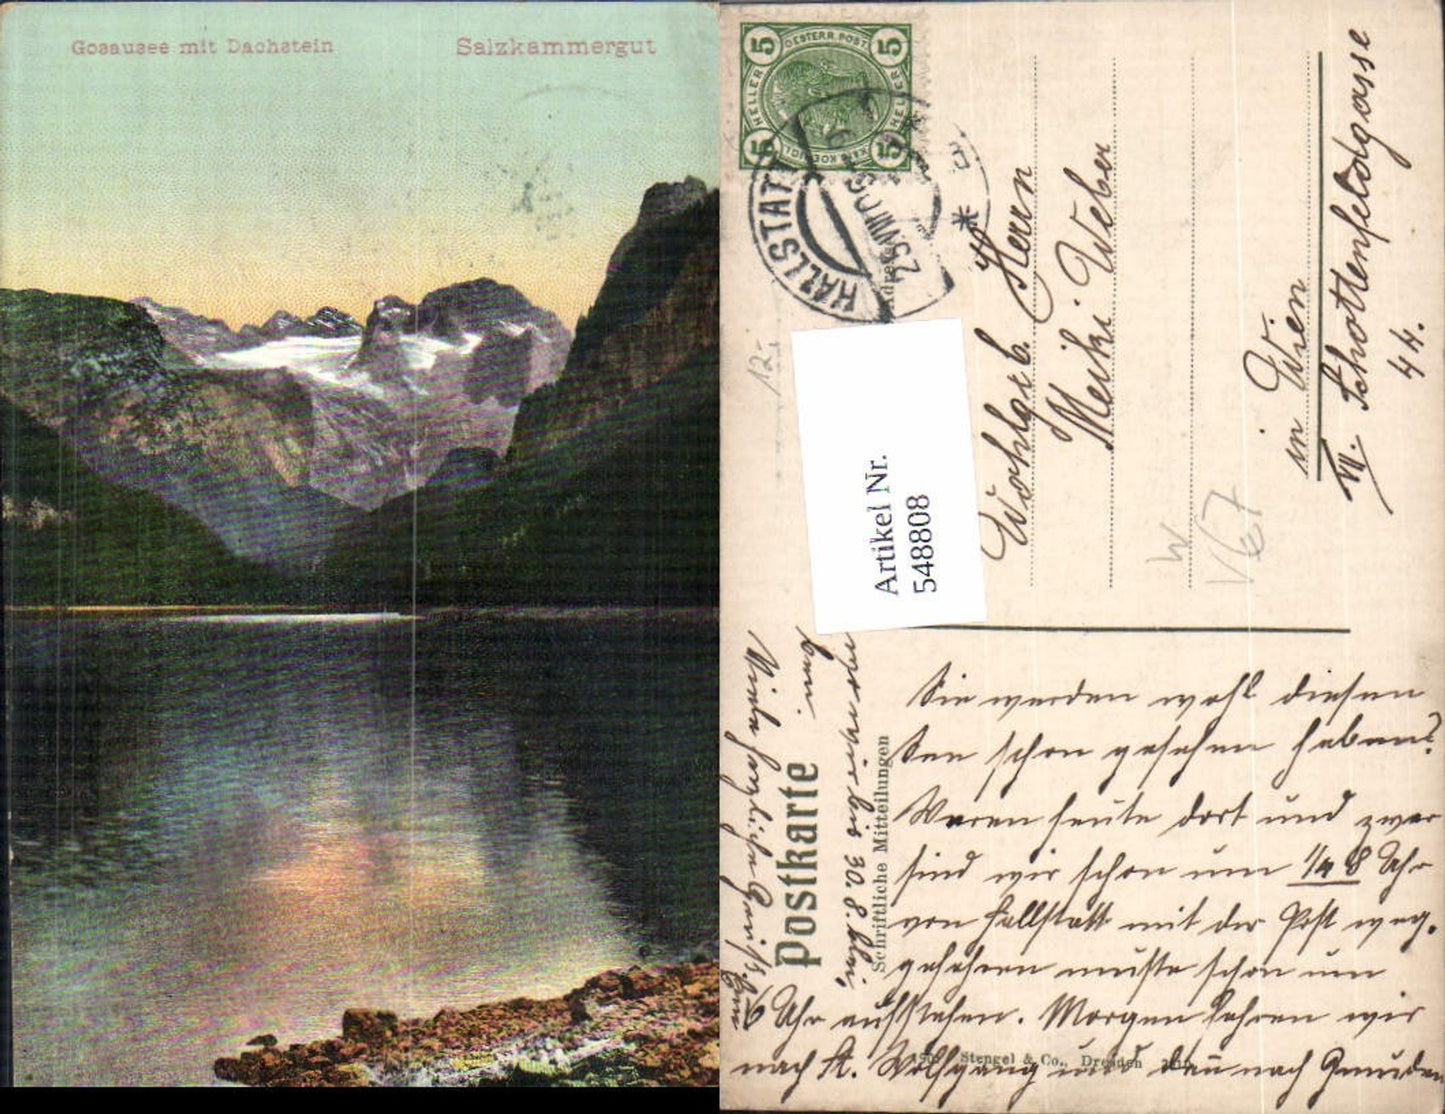 Gosausee mit Dachstein
Salzkammergut
5 OESTERR. POST. 5
HELLER
HELLER
5 KAIS. KOENIGL. 5
HALLSTATT
25.VIII.09
*
12.-
Artikel Nr.
548808
Wohlgeb. Herrn
Weber
in Wien
VII. Schottenfeldgasse
44.
W
V67
Postkarte
Schriftliche Mitteilungen
Sie werden wohl diesen
See schon gesehen haben?
Waren heute dort und zwar
sind wir schon um 1/4 8 Uhr
von Hallstatt mit der Post weg-
gefahren mußte schon um
6 Uhr aufstehen. Morgen fahren wir
nach St. Wolfgang und dann nach Gmunden
wo wir bis 30. 8.
Viele herzliche Grüße
Stengel & Co., Dresden